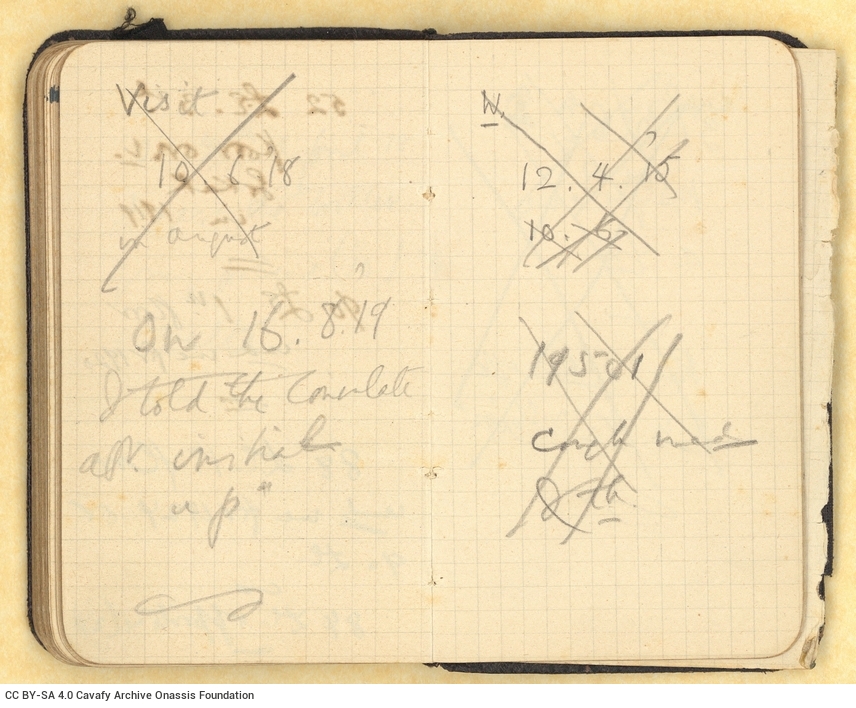 Visit.
10 6 18
in august
On 16.8.19
I told the Consulate
ap. initial
"up"
W.
12.4.15
10.6
19501
cough med
8th.
CC BY-SA 4.0 Cavafy Archive Onassis Foundation